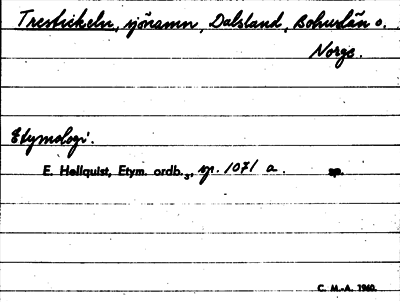 Trestickeln, sjönamn, Dalsland, Bohuslän o.
Norge.
Etymologi.
E. Hellquist, Etym. ordb.3, sp. 1071 a. sp.
C. M.-A. 1960.